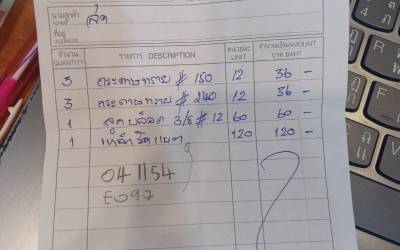 นามลูกค้า สด
NAME
ที่อยู่
ADDRESS
จำนวน รายการ DESCRIPTION หน่วยละ จำนวนเงิน AMOUNT
QUANTITY UNIT บาท BAHT
3 กระดาษทราย # 150 12 36 -
3 กระดาษทราย # 240 12 36 -
1 ลูกบล็อค 3/8 # 12 60 60 -
1 120 120 -
04 1154
E097